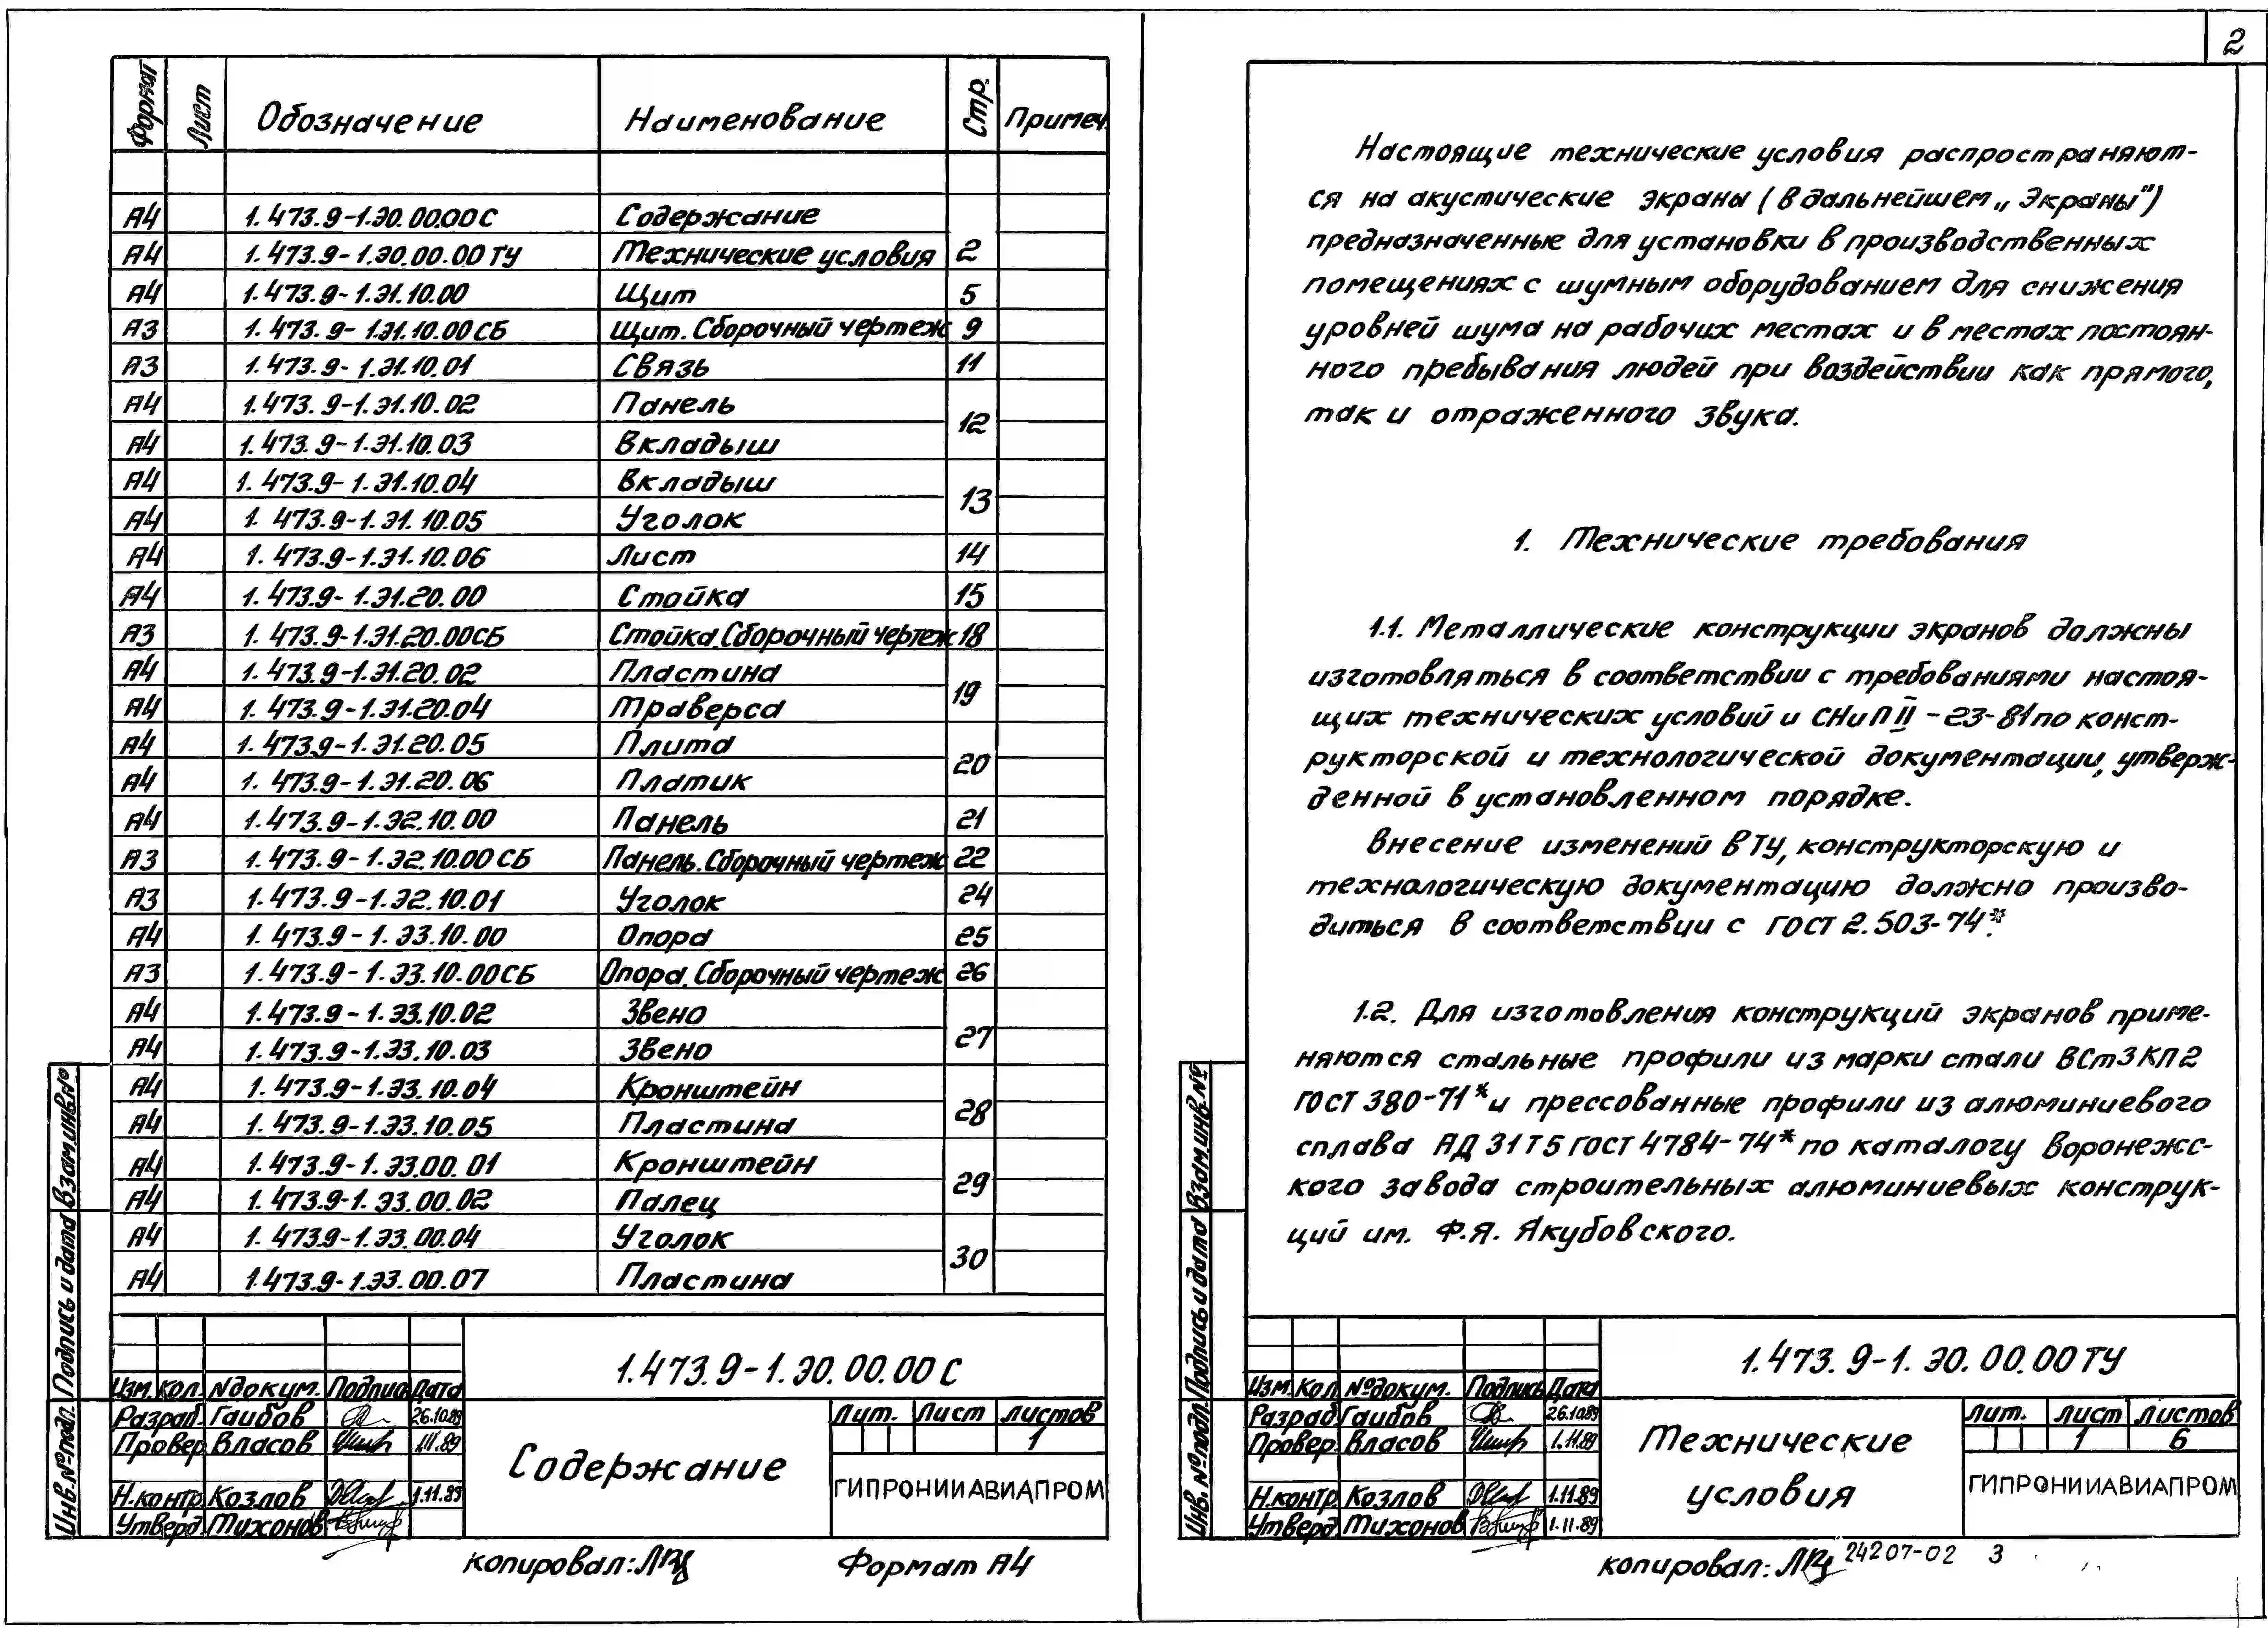 Формат Лист Обозначение Наименование Стр. Примеч.
А4 1.473.9-1.Э0.00.00С Содержание
А4 1.473.9-1.Э0.00.00 ТУ Технические условия 2
А4 1.473.9-1.Э1.10.00 Щит 5
А3 1.473.9-1.Э1.10.00СБ Щит. Сборочный чертеж 9
А3 1.473.9-1.Э1.10.01 Связь 11
А4 1.473.9-1.Э1.10.02 Панель
12
А4 1.473.9-1.Э1.10.03 Вкладыш
А4 1.473.9-1.Э1.10.04 Вкладыш
13
А4 1.473.9-1.Э1.10.05 Уголок
А4 1.473.9-1.Э1.10.06 Лист 14
А4 1.473.9-1.Э1.20.00 Стойка 15
А3 1.473.9-1.Э1.20.00СБ Стойка.Сборочный чертеж 18
А4 1.473.9-1.Э1.20.02 Пластина
19
А4 1.473.9-1.Э1.20.04 Траверса
А4 1.473.9-1.Э1.20.05 Плита
20
А4 1.473.9-1.Э1.20.06 Платик
А4 1.473.9-1.Э2.10.00 Панель 21
А3 1.473.9-1.Э2.10.00 СБ Панель.Сборочный чертеж 22
А3 1.473.9-1.Э2.10.01 Уголок 24
А4 1.473.9-1.Э3.10.00 Опора 25
А3 1.473.9-1.Э3.10.00СБ Опора.Сборочный чертеж 26
А4 1.473.9-1.Э3.10.02 Звено
27
А4 1.473.9-1.Э3.10.03 Звено
А4 1.473.9-1.Э3.10.04 Кронштейн
28
А4 1.473.9-1.Э3.10.05 Пластина
А4 1.473.9-1.Э3.00.01 Кронштейн
29
А4 1.473.9-1.Э3.00.02 Палец
А4 1.473.9-1.Э3.00.04 Уголок
30
А4 1.473.9-1.Э3.00.07 Пластина
Взам.инв.№
Подпись и дата
Инв.№ подл.
1.473.9-1.Э0.00.00 С
Изм. Кол. Nдокум. Подпись Дата
Разраб. Гаибов 26.10.89
Провер. Власов 1.11.89
Н.контр. Козлов 1.11.89
Утверд. Тихонов
Содержание
Лит. Лист Листов
1
ГИПРОНИИАВИАПРОМ
копировал:
Формат А4
2
Настоящие технические условия распространяют-
ся на акустические экраны (в дальнейшем „Экраны")
предназначенные для установки в производственных
помещениях с шумным оборудованием для снижения
уровней шума на рабочих местах и в местах постоян-
ного пребывания людей при воздействии как прямого,
так и отраженного звука.
1. Технические требования
1.1. Металлические конструкции экранов должны
изготовляться в соответствии с требованиями настоя-
щих технических условий и СНиП II-23-81 по конст-
рукторской и технологической документации, утверж-
денной в установленном порядке.
Внесение изменений в ТУ, конструкторскую и
технологическую документацию должно произво-
диться в соответствии с ГОСТ 2.503-74*.
1.2. Для изготовления конструкций экранов приме-
няются стальные профили из марки стали ВСт3КП2
ГОСТ 380-71* и прессованные профили из алюминиевого
сплава АД 31Т5 ГОСТ 4784-74* по каталогу Воронежс-
кого завода строительных алюминиевых конструк-
ций им. Ф.Я. Якубовского.
Взам.инв.№
Подпись и дата
Инв.№ подл.
1.473.9-1.Э0.00.00 ТУ
Изм. Кол №докум. Подпись Дата
Разраб Гаибов 26.10.89
Провер. Власов 1.11.89
Н.контр Козлов 1.11.89
Утверд Тихонов 1.11.89
Технические
условия
Лит. Лист Листов
1 6
ГИПРОНИИАВИАПРОМ
копировал:
24207-02 3